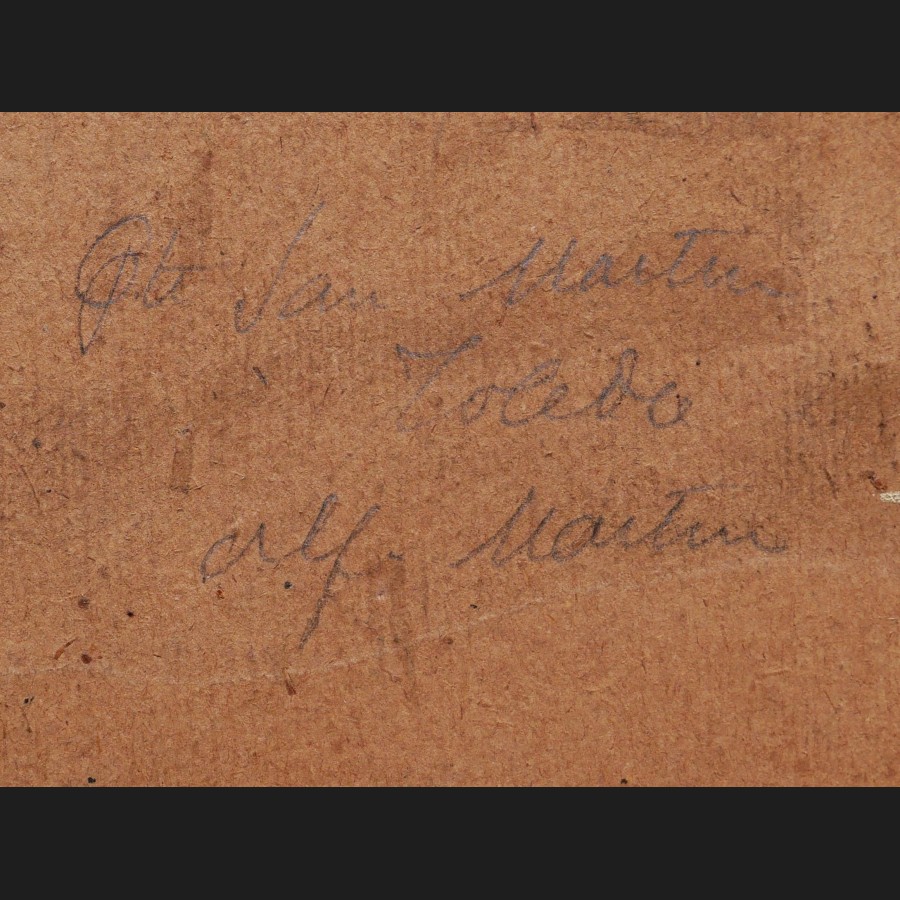 Pte San Martin
Toledo
Alf. Martin